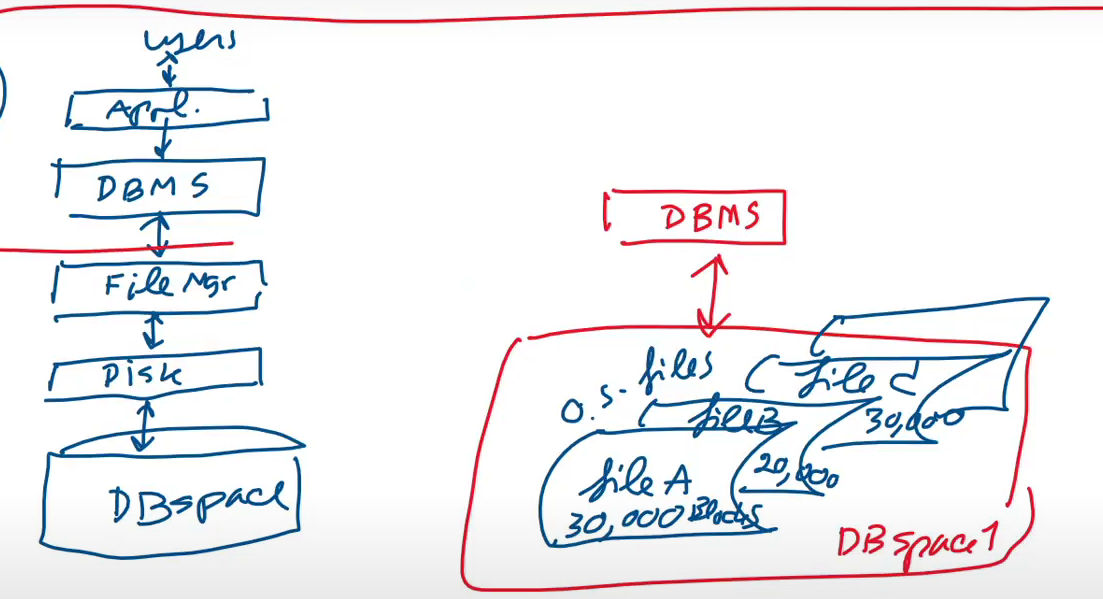 users
Appl.
DBMS
File Mgr
Disk
DBspace
DBMS
O.S. files
file C
30,000
file B
20,000
file A
30,000 Blocks
DBspace1